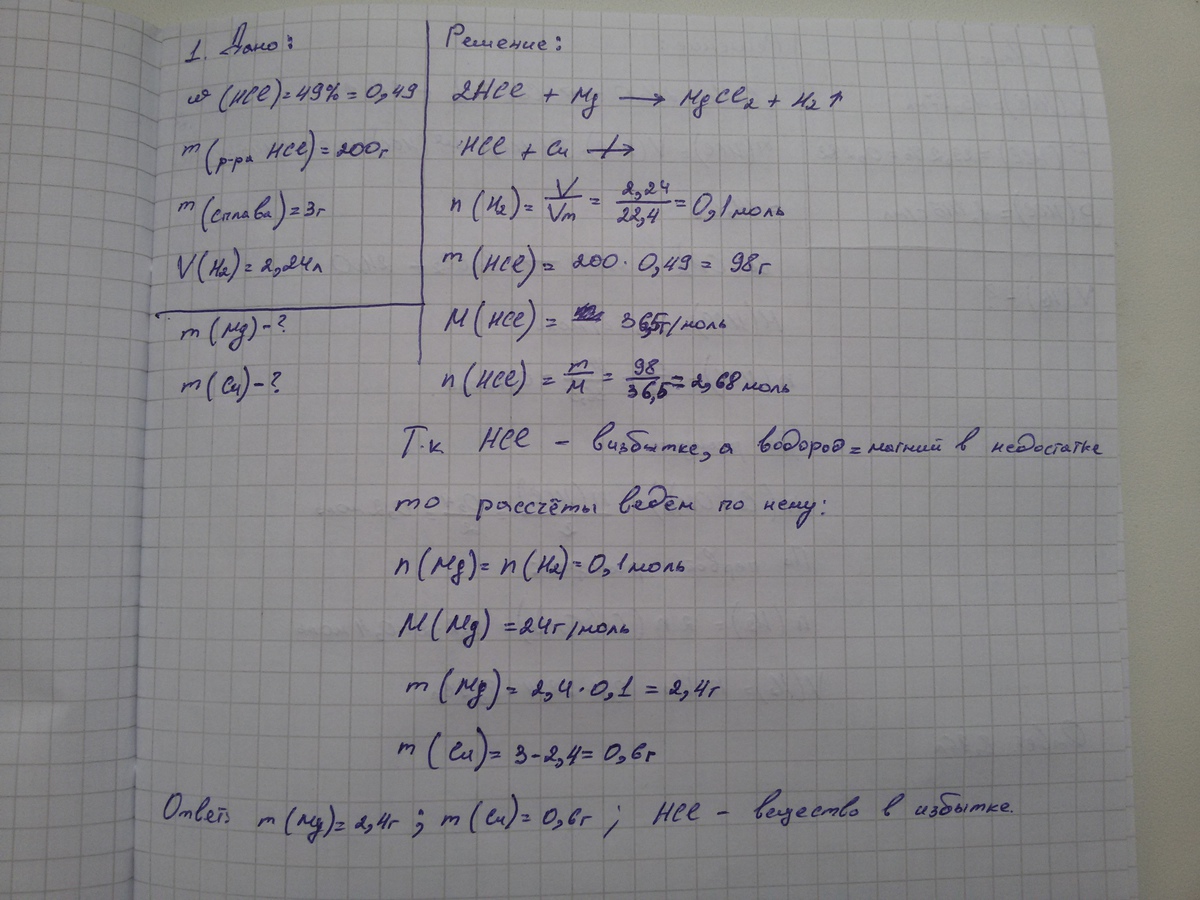 1. Дано:
ω (HCl) = 49% = 0,49
m (р-ра HCl) = 200г
m (сплава) = 3г
V (H₂) = 2,24л
m (Mg) - ?
m (Cu) - ?
Решение:
2HCl + Mg → MgCl₂ + H₂↑
HCl + Cu ↛
n (H₂) = V/Vm = 2,24/22,4 = 0,1 моль
m (HCl) = 200 · 0,49 = 98г
M (HCl) = 36,5г/моль
n (HCl) = m/M = 98/36,5 = 2,68 моль
Т.к HCl - визбытке, а водород = магний в недостатке
то рассчёты ведём по нему:
n (Mg) = n (H₂) = 0,1 моль
M (Mg) = 24г/моль
m (Mg) = 2,4 · 0,1 = 2,4г
m (Cu) = 3 - 2,4 = 0,6г
Ответ: m (Mg) = 2,4г ; m (Cu) = 0,6г ; HCl - вещество в избытке.